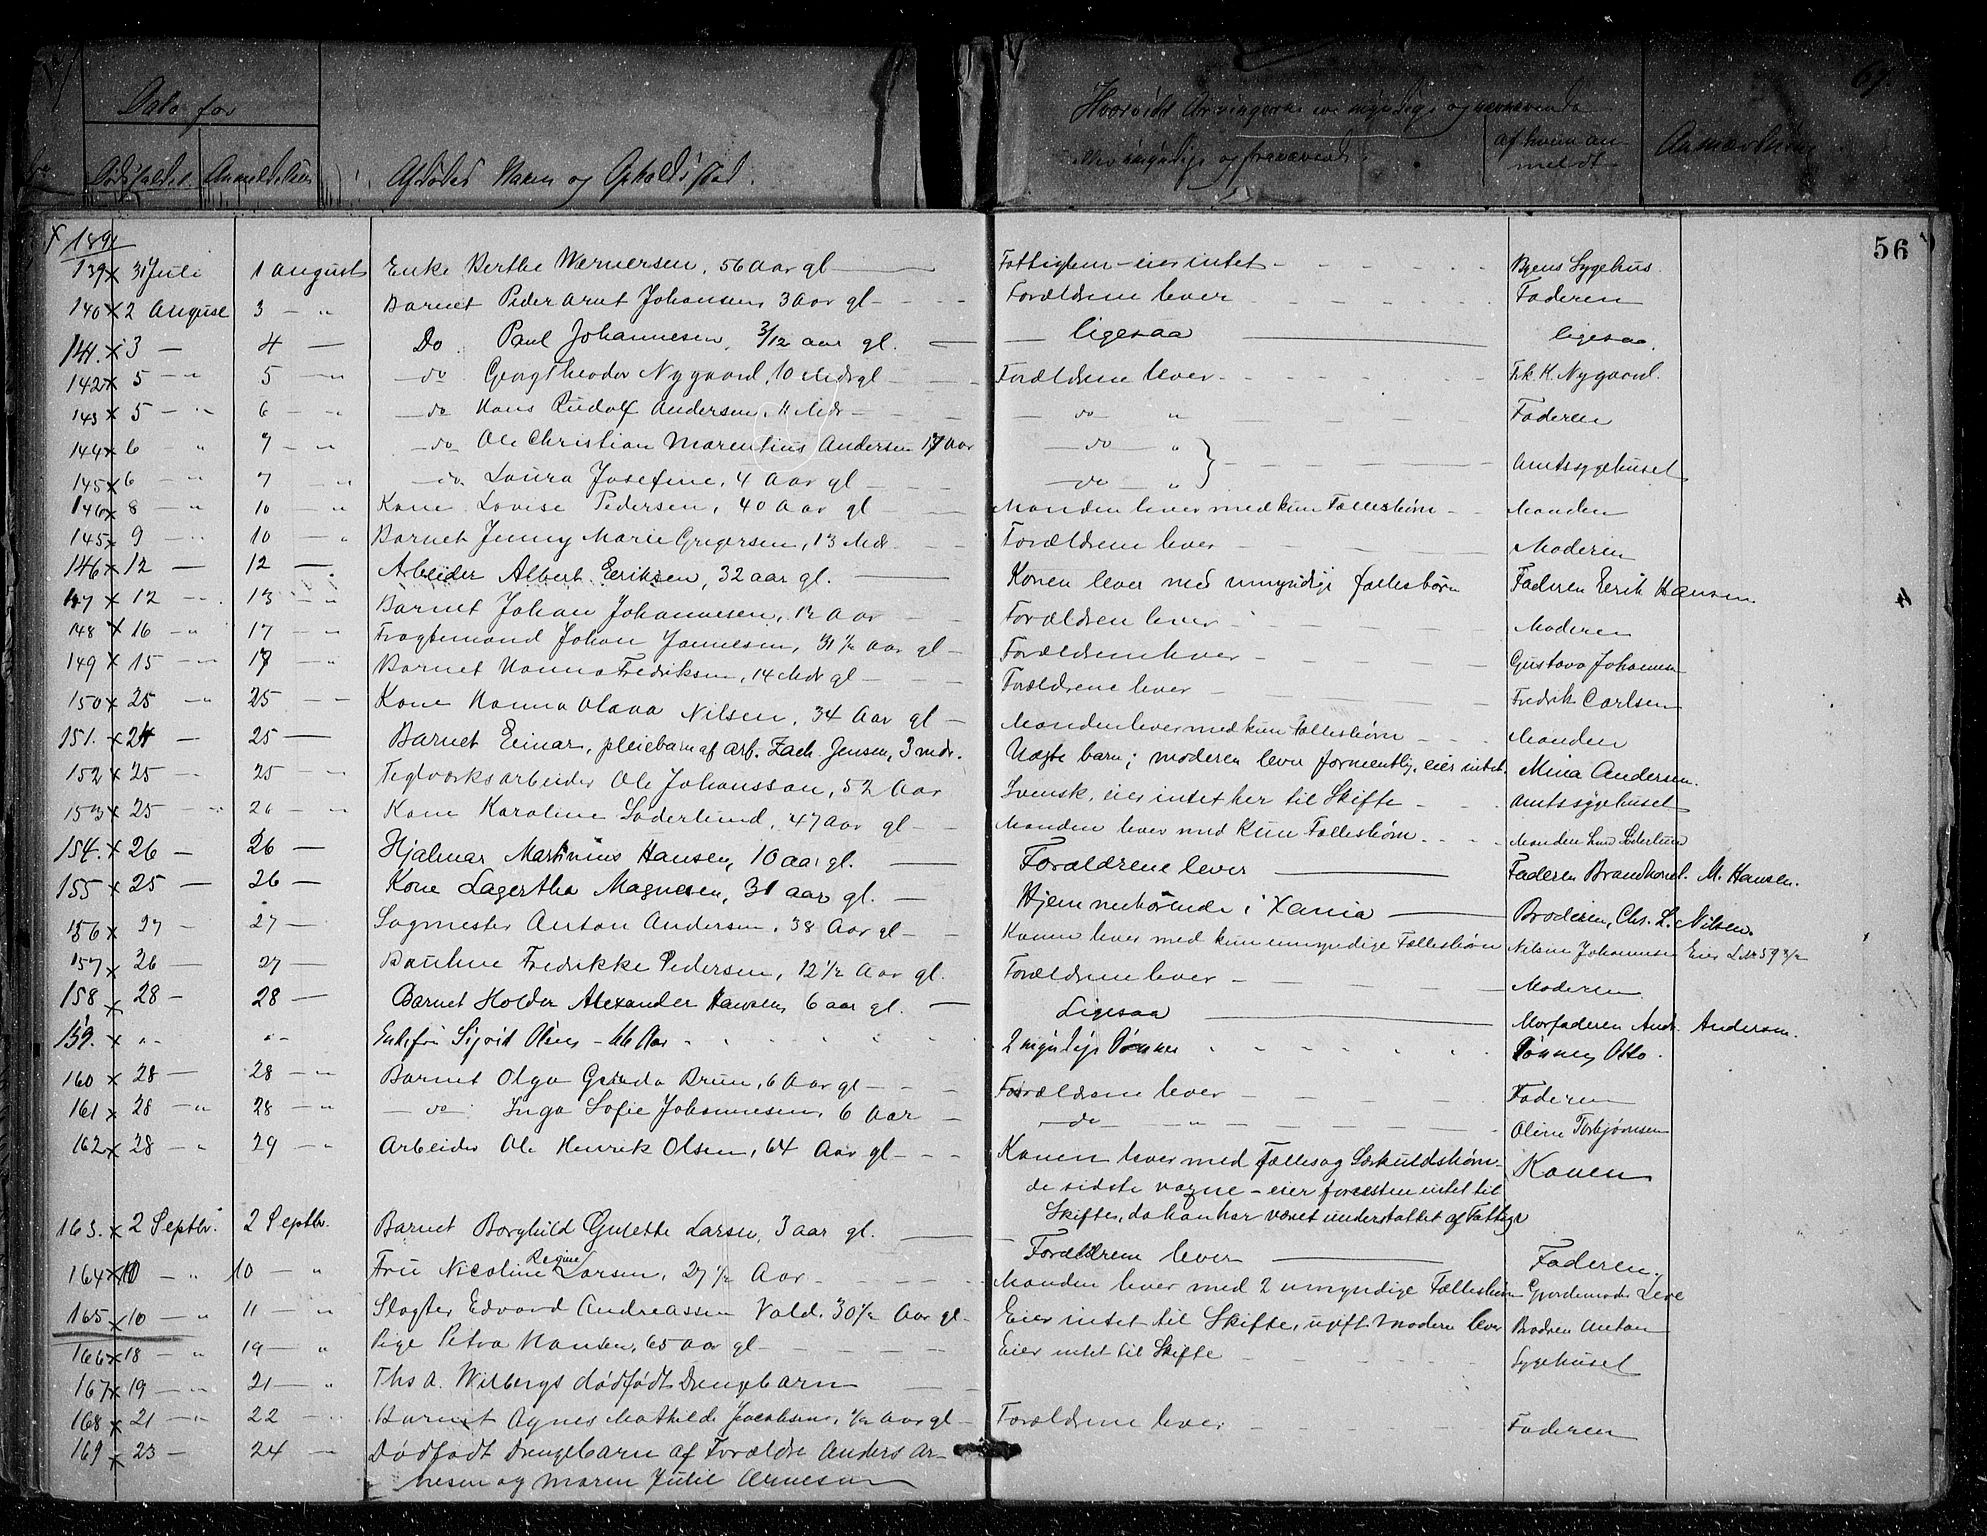 Dato for
Dødsfaldet. Anmeldelsen
Afdødes Navn og Opholdssted.
Hvorvidt Arvingerne ere myndige og nærværende
eller umyndige og fraværende.
af hvem an
meldt
Anmærkning
56
1891
139 x 31 Juli 1 August Enke Berthe Wernersen, 56 Aar gl Fattiglem - eier intet Byens Sygehus.
140 x 2 August 3 Barnet Peder Arnt Johansen 3 Aar gl Forældrene lever Faderen
141. x 3 4 Do Paul Johannesen, 3/12 aar gl. ligesaa ligesaa.
142 x 5 5 do Georg Theodor Nygaard, 10 Mdr gl Forældrene lever Frk. K. Nygaard.
143 x 5 6 do Hans Rudolf Andersen, 11 Mdr do Faderen
144 x 6 7 do Ole Christian Marentius Andersen 17 Aar do
145 x 6 7 do Laura Josefine, 4 Aar gl do Amtssygehuset
146 x 8 10 Kone Lovise Pedersen, 40 Aar gl Manden lever med kun Fællesbørn Manden
145 x 9 10 Barnet Jenny Marie Gregersen, 13 Mdr Forældrene lever Moderen
146 x 12 12 Arbeider Albert Eriksen, 32 aar gl. Konen lever med umyndige fællesbørn Faderen Eerik Hansen
147 x 12 13 Barnet Johan Johannesen, 12 Aar Forældren lever Moderen
148 x 16 17 Fragtemand Johan Jannesen, 31 1/2 Aar gl Forældrene lever Gustava Johannesen
149 x 15 17 Barnet Hanna Fredriksen, 14 Mdr gl Forældrene lever Fredrik Carlsen
150 x 25 25 Kone Hanna Olava Nilsen, 34 Aar gl Manden lever med kun Fællesbørn Manden
151. x 24 25 Barnet Einar, pleiebarn af Arb. Zach. Jensen, 3 mdr. Uægte barn; moderen lever formentlig, eier intet. Mina Andersen.
152 x 25 25 Teglværksarbeider Ole Johansson, 52 Aar Svensk, eier intet her til Skifte Amtssygehuset
153 x 25 26 Kone Karoline Søderlund, 47 Aar gl Manden lever med kun Fællesbørn Manden Søderlund
154. x 26 26 Hjalmar Martinius Hansen, 10 aar gl. Forældrene lever Faderen Brandkonst. M. Hansen.
155 x 25 26 Kone Lagertha Magnesen, 31 aar gl. Hjemmehørende i Xania Broderen, Chr. L. Nilsen.
156 x 27 27 Sagmester Anton Andersen, 38 Aar gl Konen lever med kun umyndige Fællesbørn Nilsine Johannesen Eier L No 59 3/2
157 x 26 27 Pauline Fredrikke Pedersen, 12 1/2 Aar gl. Forældrene lever Moderen
158 x 28 28 Barnet Holder Alexander Hansen, 6 aar gl. Ligesaa Morfaderen Andr. Andersen.
159. x Enkefru Sigrid Olsen - 66 Aar 2 myndige Sønner Sønnen Otto.
160 x 28 28 Barnet Olga Gerda Brun, 6 Aar gl Forældrene lever Faderen
161 x 28 28 do Inga Sofie Johannesen, 6 Aar do Oline Torbjørnsen
162 x 28 29 Arbeider Ole Henrik Olsen, 64 Aar gl Konen lever med Fælles og Særkuldsbørn Konen
de sidste voxne - eier foresten intet til
Skifte, da han har været understøttet af Fattige
163. x 2 Septbr. 2 Septbr. Barnet Borghild Gulette Larsen, 3 aar gl. Forældrene lever Faderen,
164 x 10 10 Fru Nicoline Regine Larsen, 27 1/2 Aar Manden lever med 2 umyndige Fællesbørn Gjordemoder Leve
165 x 10 11 Slagter Edvard Andreassen Vold, 30 1/2 Aar gl Eier intet til Skifte, ugift Moderen lever Brodren Anton
166 x 18 19 Pige Petra Hansen, 65 Aar gl Eier intet til Skifte Sygehuset
167 x 19 21 Ths A. Wilbergs dødfødt Drengebarn
168 x 21 22 Barnet Agnes Mathilde Jacobsen, 1/2 Aar gl Forældrene lever Faderen
169 x 23 24 Dødfødt Drengebarn af Forældre Anders Ar-
nesen og Maren Julie Arnesen